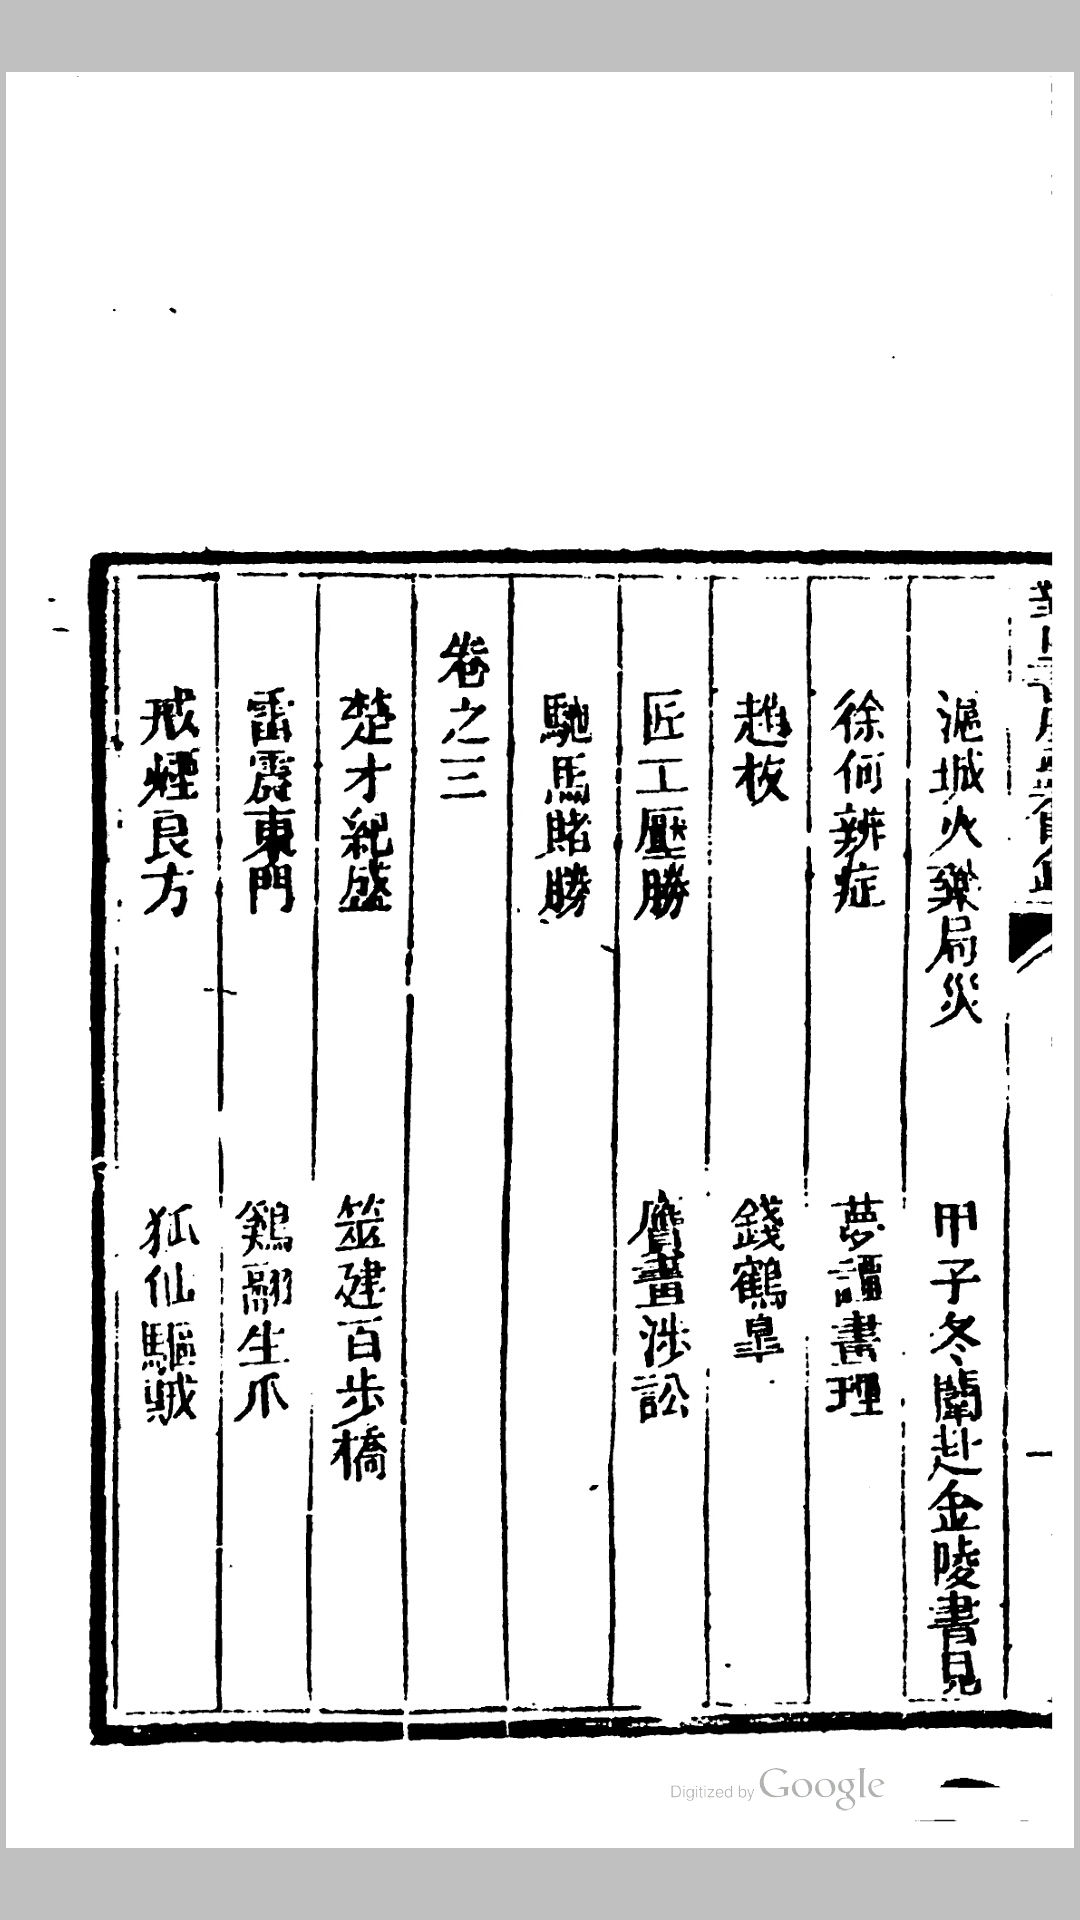 滬城火藥局災　甲子冬闈赴金陵書見
徐何辨症　夢讀書理
趙枚　錢鶴皐
匠工壓勝　贋畫涉訟
馳馬賭勝
卷之三
楚才紀盛　築建百步橋
雷震東門　鷄翮生爪
戒煙良方　狐仙驅賊
Digitized by Google